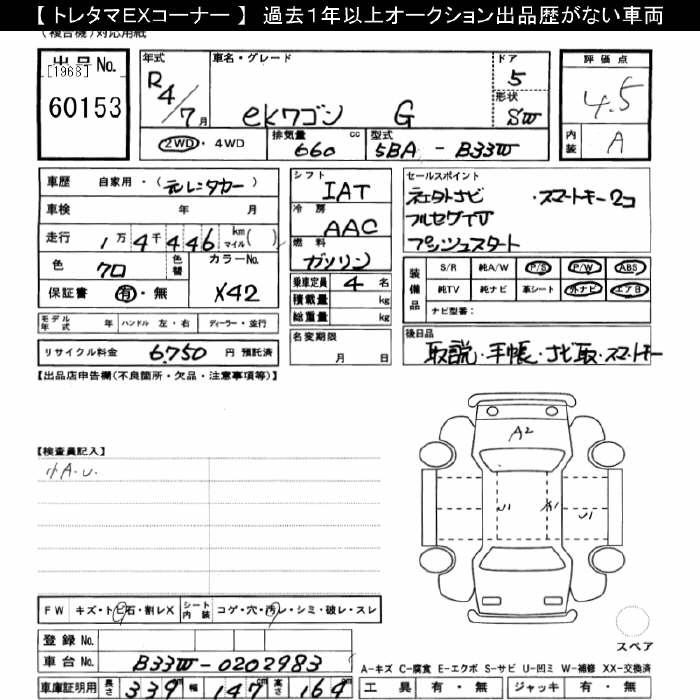 【トレタマEXコーナー】 過去1年以上オークション出品歴がない車両
(複合機)対応用紙
出品No. [1968] 60153
年式 R4/7月
車名・グレード ekワゴン G
ドア 5
形状 SW
評価点 4.5
内装 A
2WD・4WD
排気量 660 cc
型式 5BA - B33W
車歴 自家用・(元レンタカー)
車検 年 月
走行 1万4千446 km マイル( )
色 クロ 色替 カラーNo. X42
保証書 有・無
シフト IAT
冷房 AAC
燃料 ガソリン
乗車定員 4名
積載量 kg
総重量 kg
セールスポイント
・スマートキー2コ
フルセグTV
プッシュスタート
装備品 S/R 純A/W P/S P/W ABS
純TV 純ナビ 革シート 外ナビ エアB
ナビ型番:
モデル年式 年 ハンドル 左・右 ディーラー・並行
リサイクル料金 6,750 円 預託済
名変期限 月 日
後日品
取説・手帳・ナビ取・スマートキー
【出品店申告欄(不良箇所・欠品・注意事項等)】
【検査員記入】
小A.U.
A2
U1 X1 U1
FW キズ・トビ石・割レX シート内装 コゲ・穴・汚レ・シミ・破レ・スレ
登録No.
車台No. B33W-0202983
車庫証明用 長さ 339cm 幅 147cm 高さ 164cm
スペア
A-キズ C-腐食 E-エクボ S-サビ U-凹ミ W-補修 XX-交換済
工具 有・無 ジャッキ 有・無